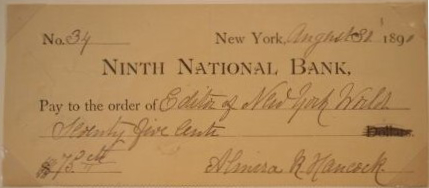 No. 34 New York, August 30 1890
NINTH NATIONAL BANK,
Pay to the order of Editor of New York World
Seventy five Cents Dollars
$ 75 cts Almira R Hancock